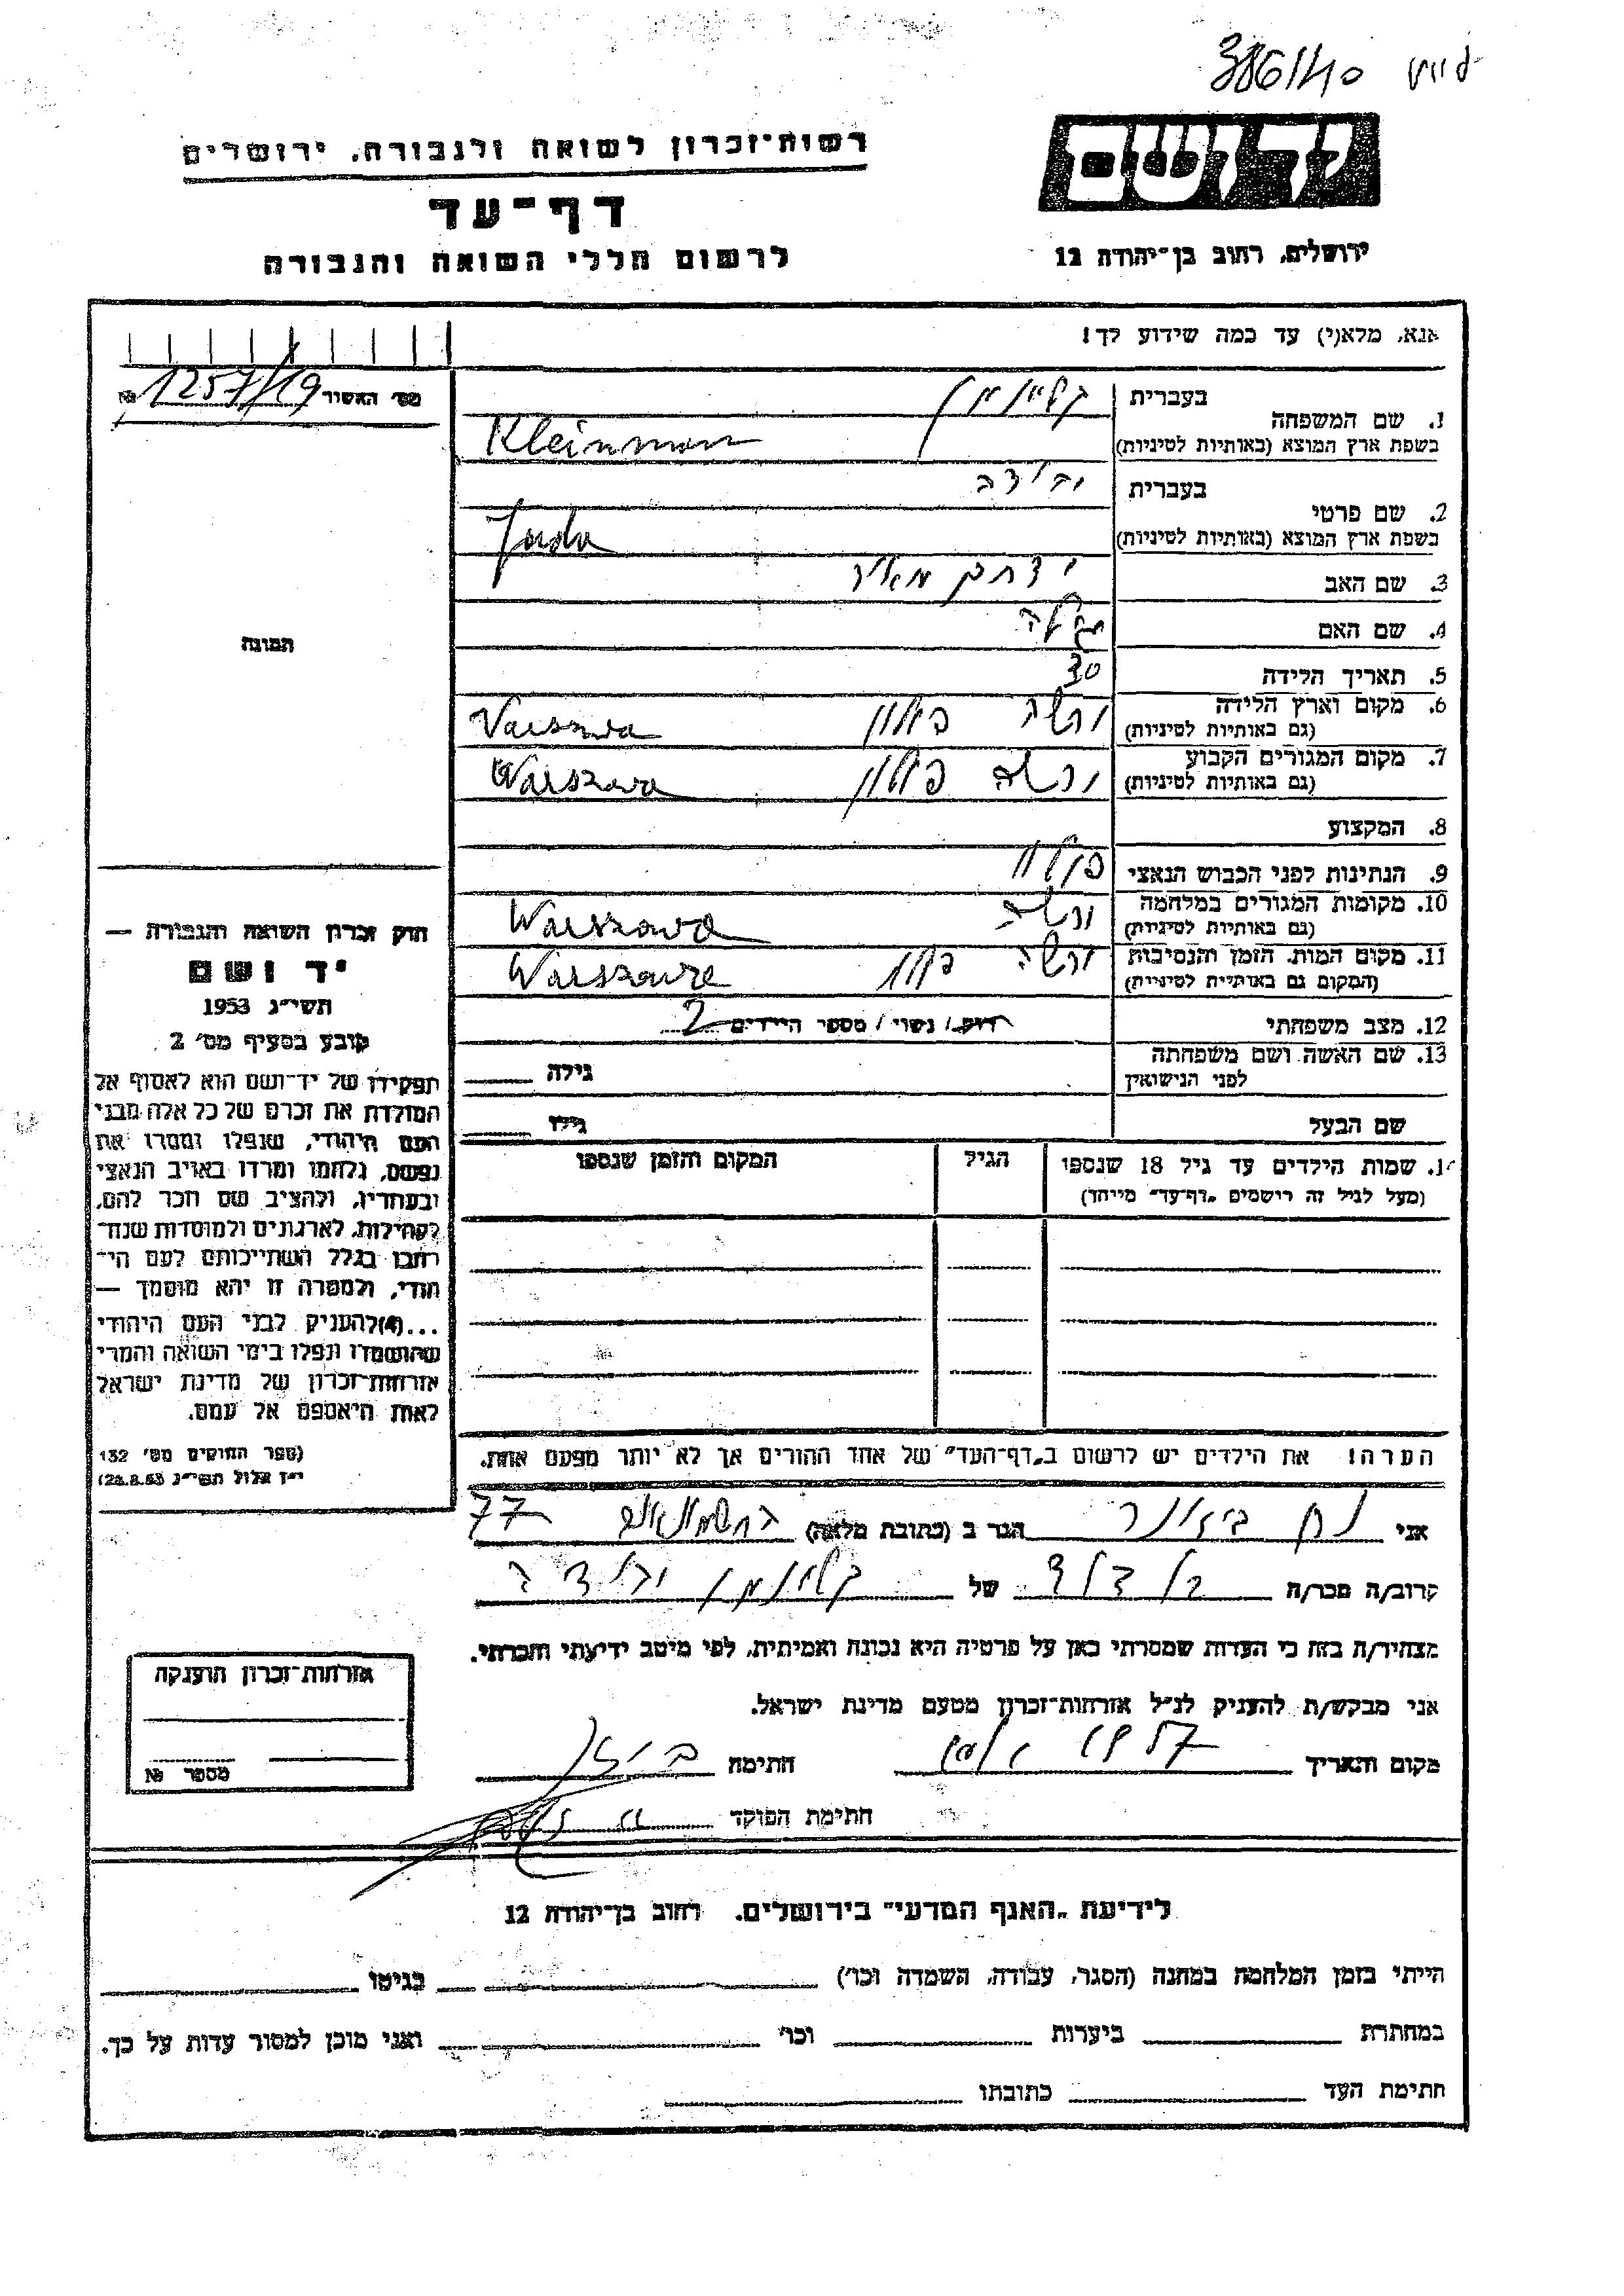 386/140
רשות־זכרון לשואה ולגבורה, ירושלים
יד ושם
דף־עד
לרשום חללי השואה והגבורה
ירושלים, רחוב בן־יהודה 12
אנא, מלא(י) עד כמה שידוע לך!
מס׳ האסיר № 1257/19
1. שם המשפחה
בעברית קליינמן
בשפת ארץ המוצא (באותיות לטיניות) Kleinman
2. שם פרטי
בעברית יהודה
בשפת ארץ המוצא (באותיות לטיניות) Juda
3. שם האב ירחם מאיר
4. שם האם
5. תאריך הלידה 30
6. מקום וארץ הלידה ורשה פולין Varszwa
(גם באותיות לטיניות)
7. מקום המגורים הקבוע ורשה פולין Warszawa
(גם באותיות לטיניות)
8. המקצוע
9. הנתינות לפני הכבוש הנאצי פולין
10. מקומות המגורים במלחמה ורשה Warszawa
(גם באותיות לטיניות)
11. מקום המות, הזמן והנסיבות ורשה פולין Warszawe
(המקום גם באותיות לטיניות)
12. מצב משפחתי רווק / נשוי / מספר הילדים 2
13. שם האשה ושם משפחתה
לפני הנישואין
גילה
שם הבעל
גילו
14. שמות הילדים עד גיל 18 שנספו
(מעל לגיל זה רושמים „דף־עד” מיוחד)
הגיל
המקום והזמן שנספו
הערה! את הילדים יש לרשום ב„דף־העד” של אחד ההורים אך לא יותר מפעם אחת.
התמונה
חוק זכרון השואה והגבורה —
יד ושם
תשי״ג 1953
קובע בסעיף מס׳ 2
תפקידו של יד־ושם הוא לאסוף אל
המולדת את זכרם של כל אלה מבני
העם היהודי, שנפלו ומסרו את
נפשם, נלחמו ומרדו באויב הנאצי
ובעוזריו, ולהציב שם וזכר להם,
לקהילות, לארגונים ולמוסדות שנח־
רבו בגלל השתייכותם לעם הי־
הודי, ולמטרה זו יהא מוסמך —
...(4)להעניק לבני העם היהודי
שהושמדו ונפלו בימי השואה והמרי
אזרחות־זכרון של מדינת ישראל
לאות היאספם אל עמם.
(ספר החוקים מס׳ 132
י״ז אלול תשי״ג 28.8.53)
אני נח הגר ב (כתובת מלאה) 77
קרוב/ה מכר/ה של קליינמן יהודה
מצהיר/ה בזה כי העדות שמסרתי כאן על פרטיה היא נכונה ואמיתית, לפי מיטב ידיעתי והכרתי.
אני מבקש/ת להעניק לנ״ל אזרחות־זכרון מטעם מדינת ישראל.
מקום ותאריך 1957 חתימה
חתימת הפוקד
אזרחות־זכרון הוענקה
מספר №
לידיעת „האגף המדעי” בירושלים, רחוב בן־יהודה 12
הייתי בזמן המלחמה במחנה (הסגר, עבודה, השמדה וכו׳) בגיטו
במחתרת ביערות וכו׳ ואני מוכן למסור עדות על כך.
חתימת העד כתובתו